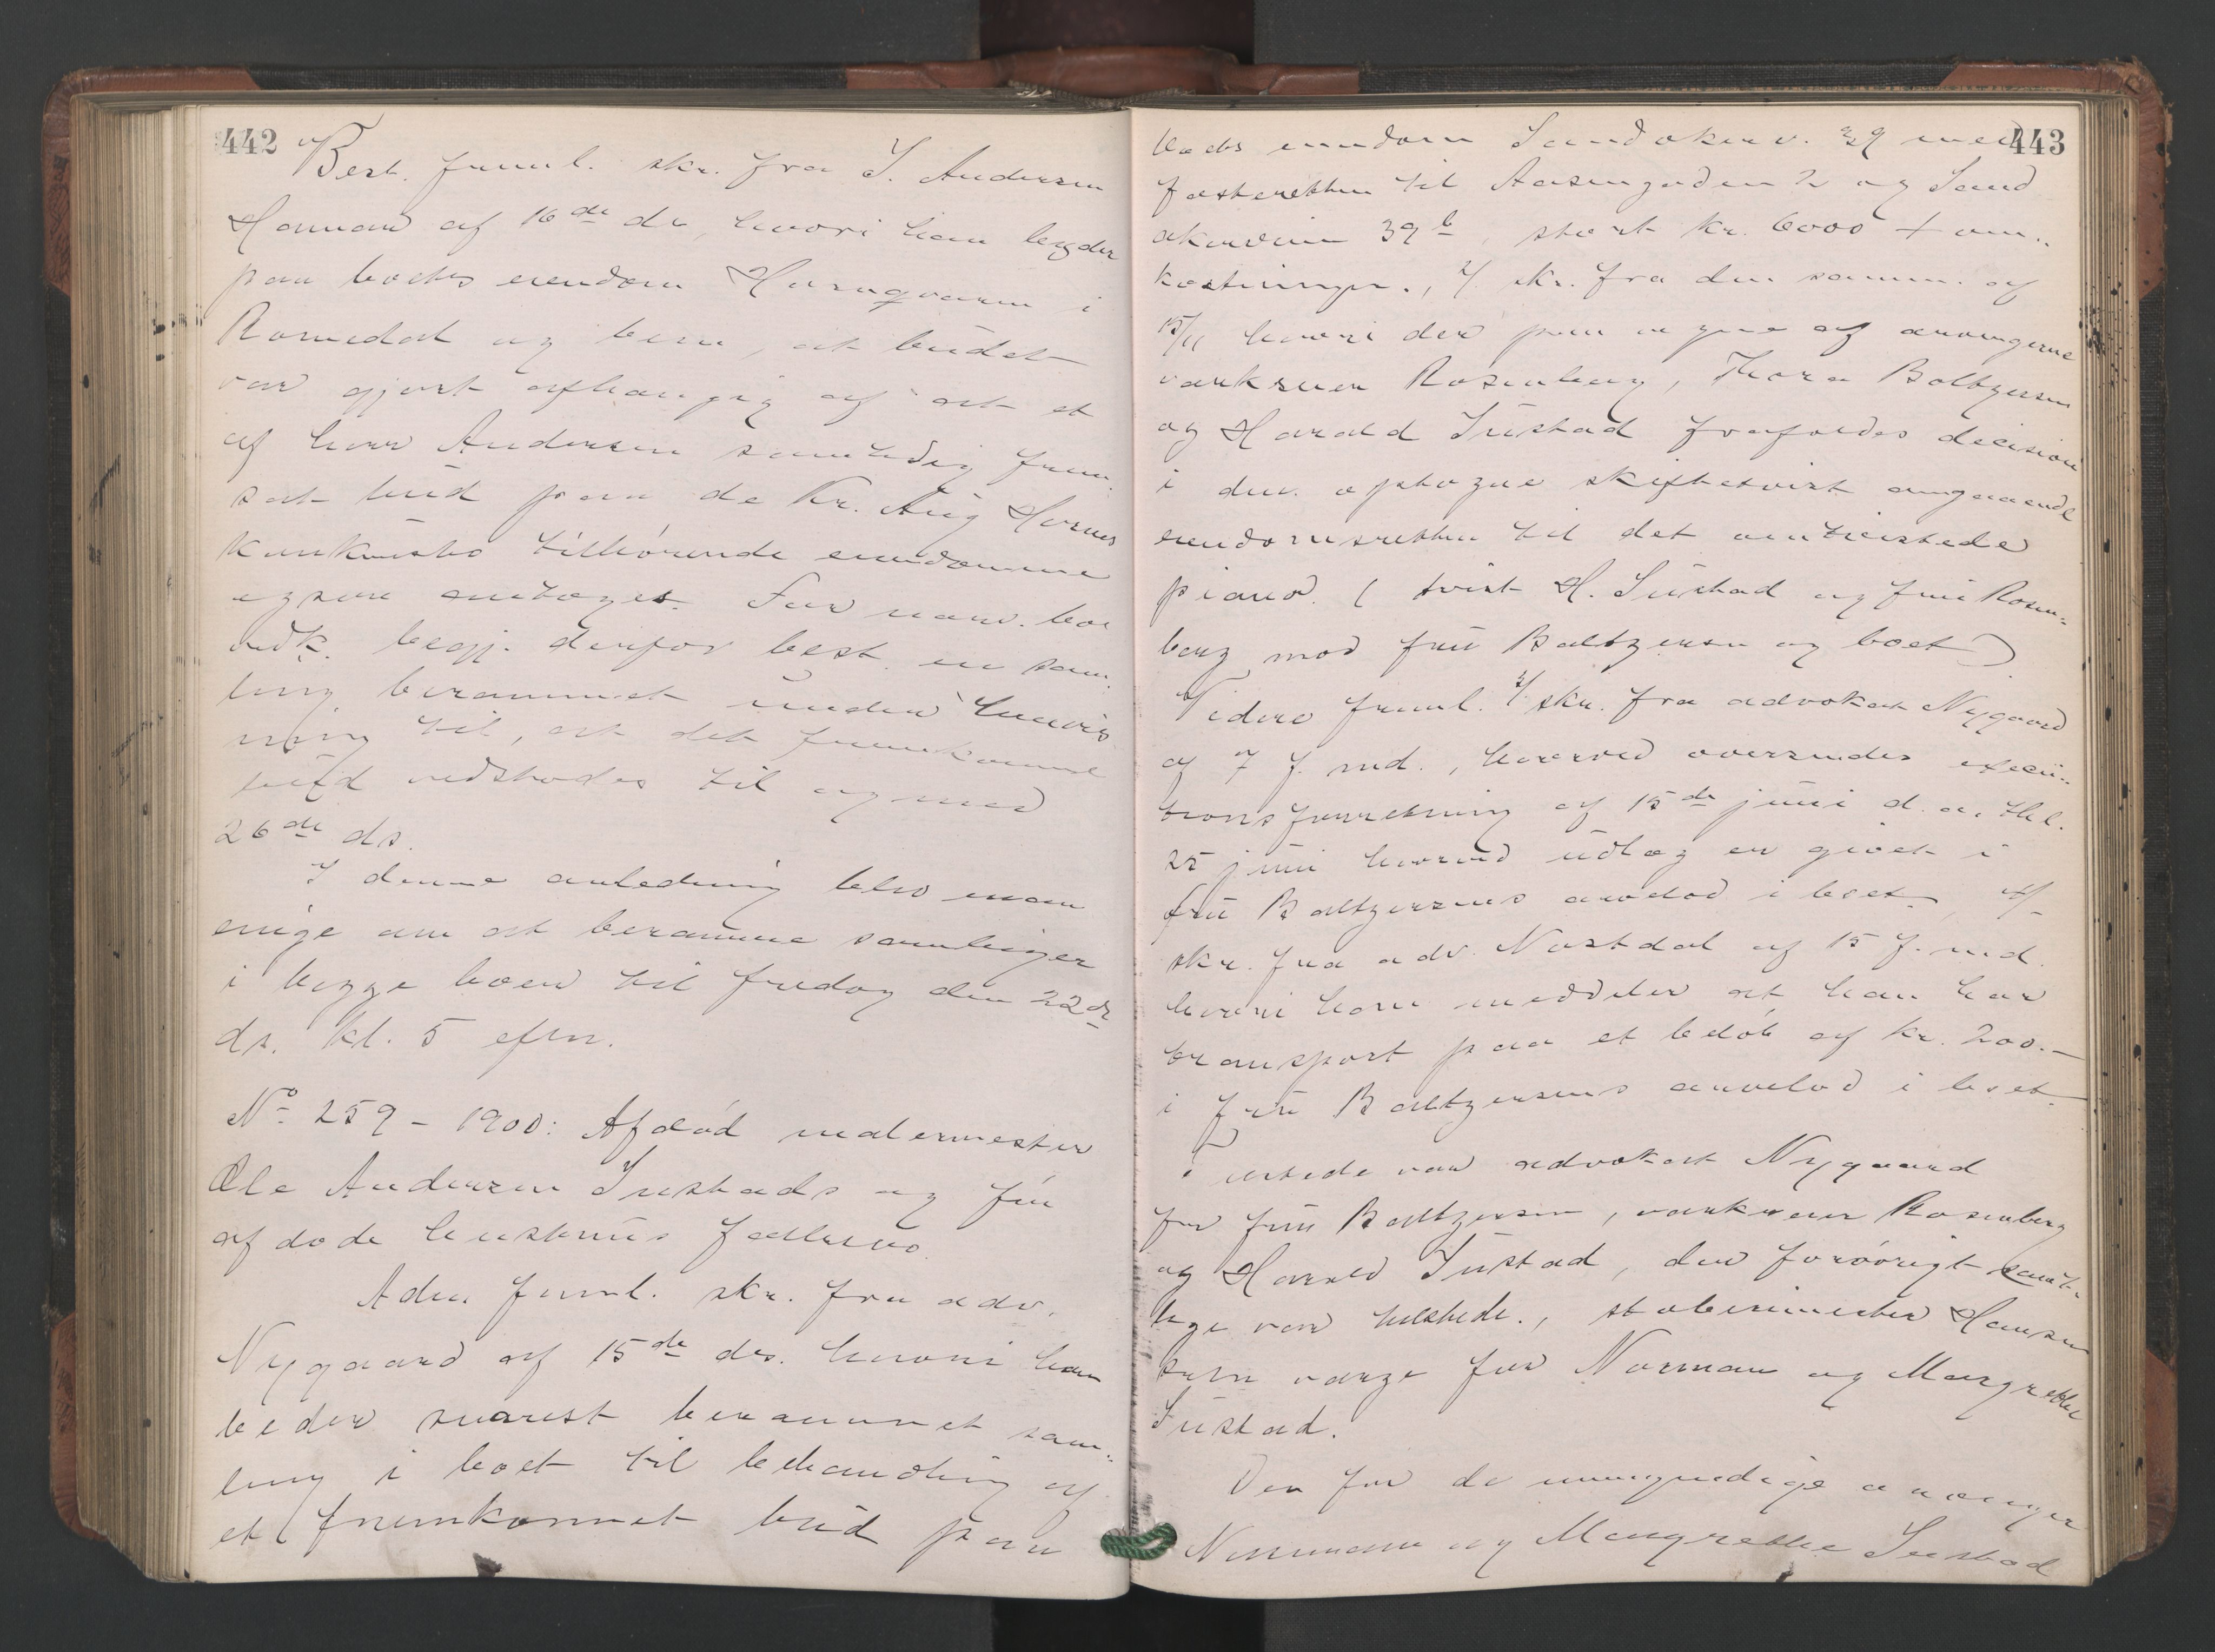 442
Best. freml. skr. fra S. Andersen
Hamar af 16de ds, hvori han byder
paa boets eiendom Hornqværn i
Romedal og bem, at budet
var gjort afhængig af at et
af herr Andersen samtidig frem-
sat bud paa de Kr. Aug Hornes
konkursbo tilhørende eiendomme
ogsaa antoges. For nærv. bo
vedk. begj. derfor best. en sam-
ling berammet under henvis-
ning til, at det fremkomne
bud vedstodes til og med
26de ds.
I denne anledning blev man
enige om at beramme samlinger
i begge boer til fredag den 22de
ds. kl. 5 eftm.
No 259 - 1900: Afdød malermester
Ole Andersen Sustads og før
afdøde hustrus fællesbo.
Adm. freml. skr. fra adv.
Nygaard af 15de ds. hvori han
beder snarest berammet sam-
ling i boet til behandling af
et fremkommet bud paa
443
boets eiendom Sandakerv. 39 med
festeretten til Aasengaden 2 og Sand
akerveien 39b, stort kr. 6000 + om-
kostninger., 1/ skr. fra den samme af
15/11 hvori der paa vegne af arvingerne
værkseier Rosenberg, Thora Baltzersen
og Harald Sustad frafaldes decision
i den optagne skiftetvist angaaende
eiendomsretten til det omtvistede
piano. ( tvist H. Sustad og fru Rosen-
berg mod fru Baltzersen og boet)
Videre freml. 1/ skr. fra advokat Nygaard
af 7 f. md., hvorved oversendes execu-
tionsforretning af 15de juni d. a. thl.
25 juni hvorved udlæg er givet i
fru Baltzersens arvelod i boet, 1/
skr. fra adv. Nastdal af 15 f. md.
hvori han meddeler at han har
transport paa et beløb af kr. 200.-
i fru Baltzersens arvelod i boet.
Tilstede var advokat Nygaard
for fru Baltzersen, værkseier Rosenberg
og Harald Sustad, der forøvrigt samt-
lige var tilstede., stoberimester Hansen
som værge for Norman og Margrethe
Sustad.
Den for de umyndige arvinger
Normann og Margrethe Sustad